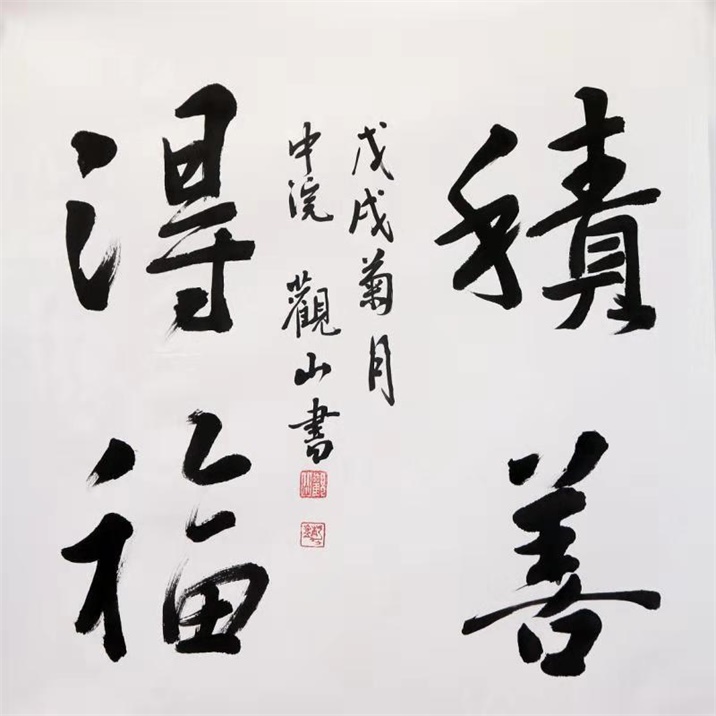 積善
得福
戊戌菊月
中浣 觀山書